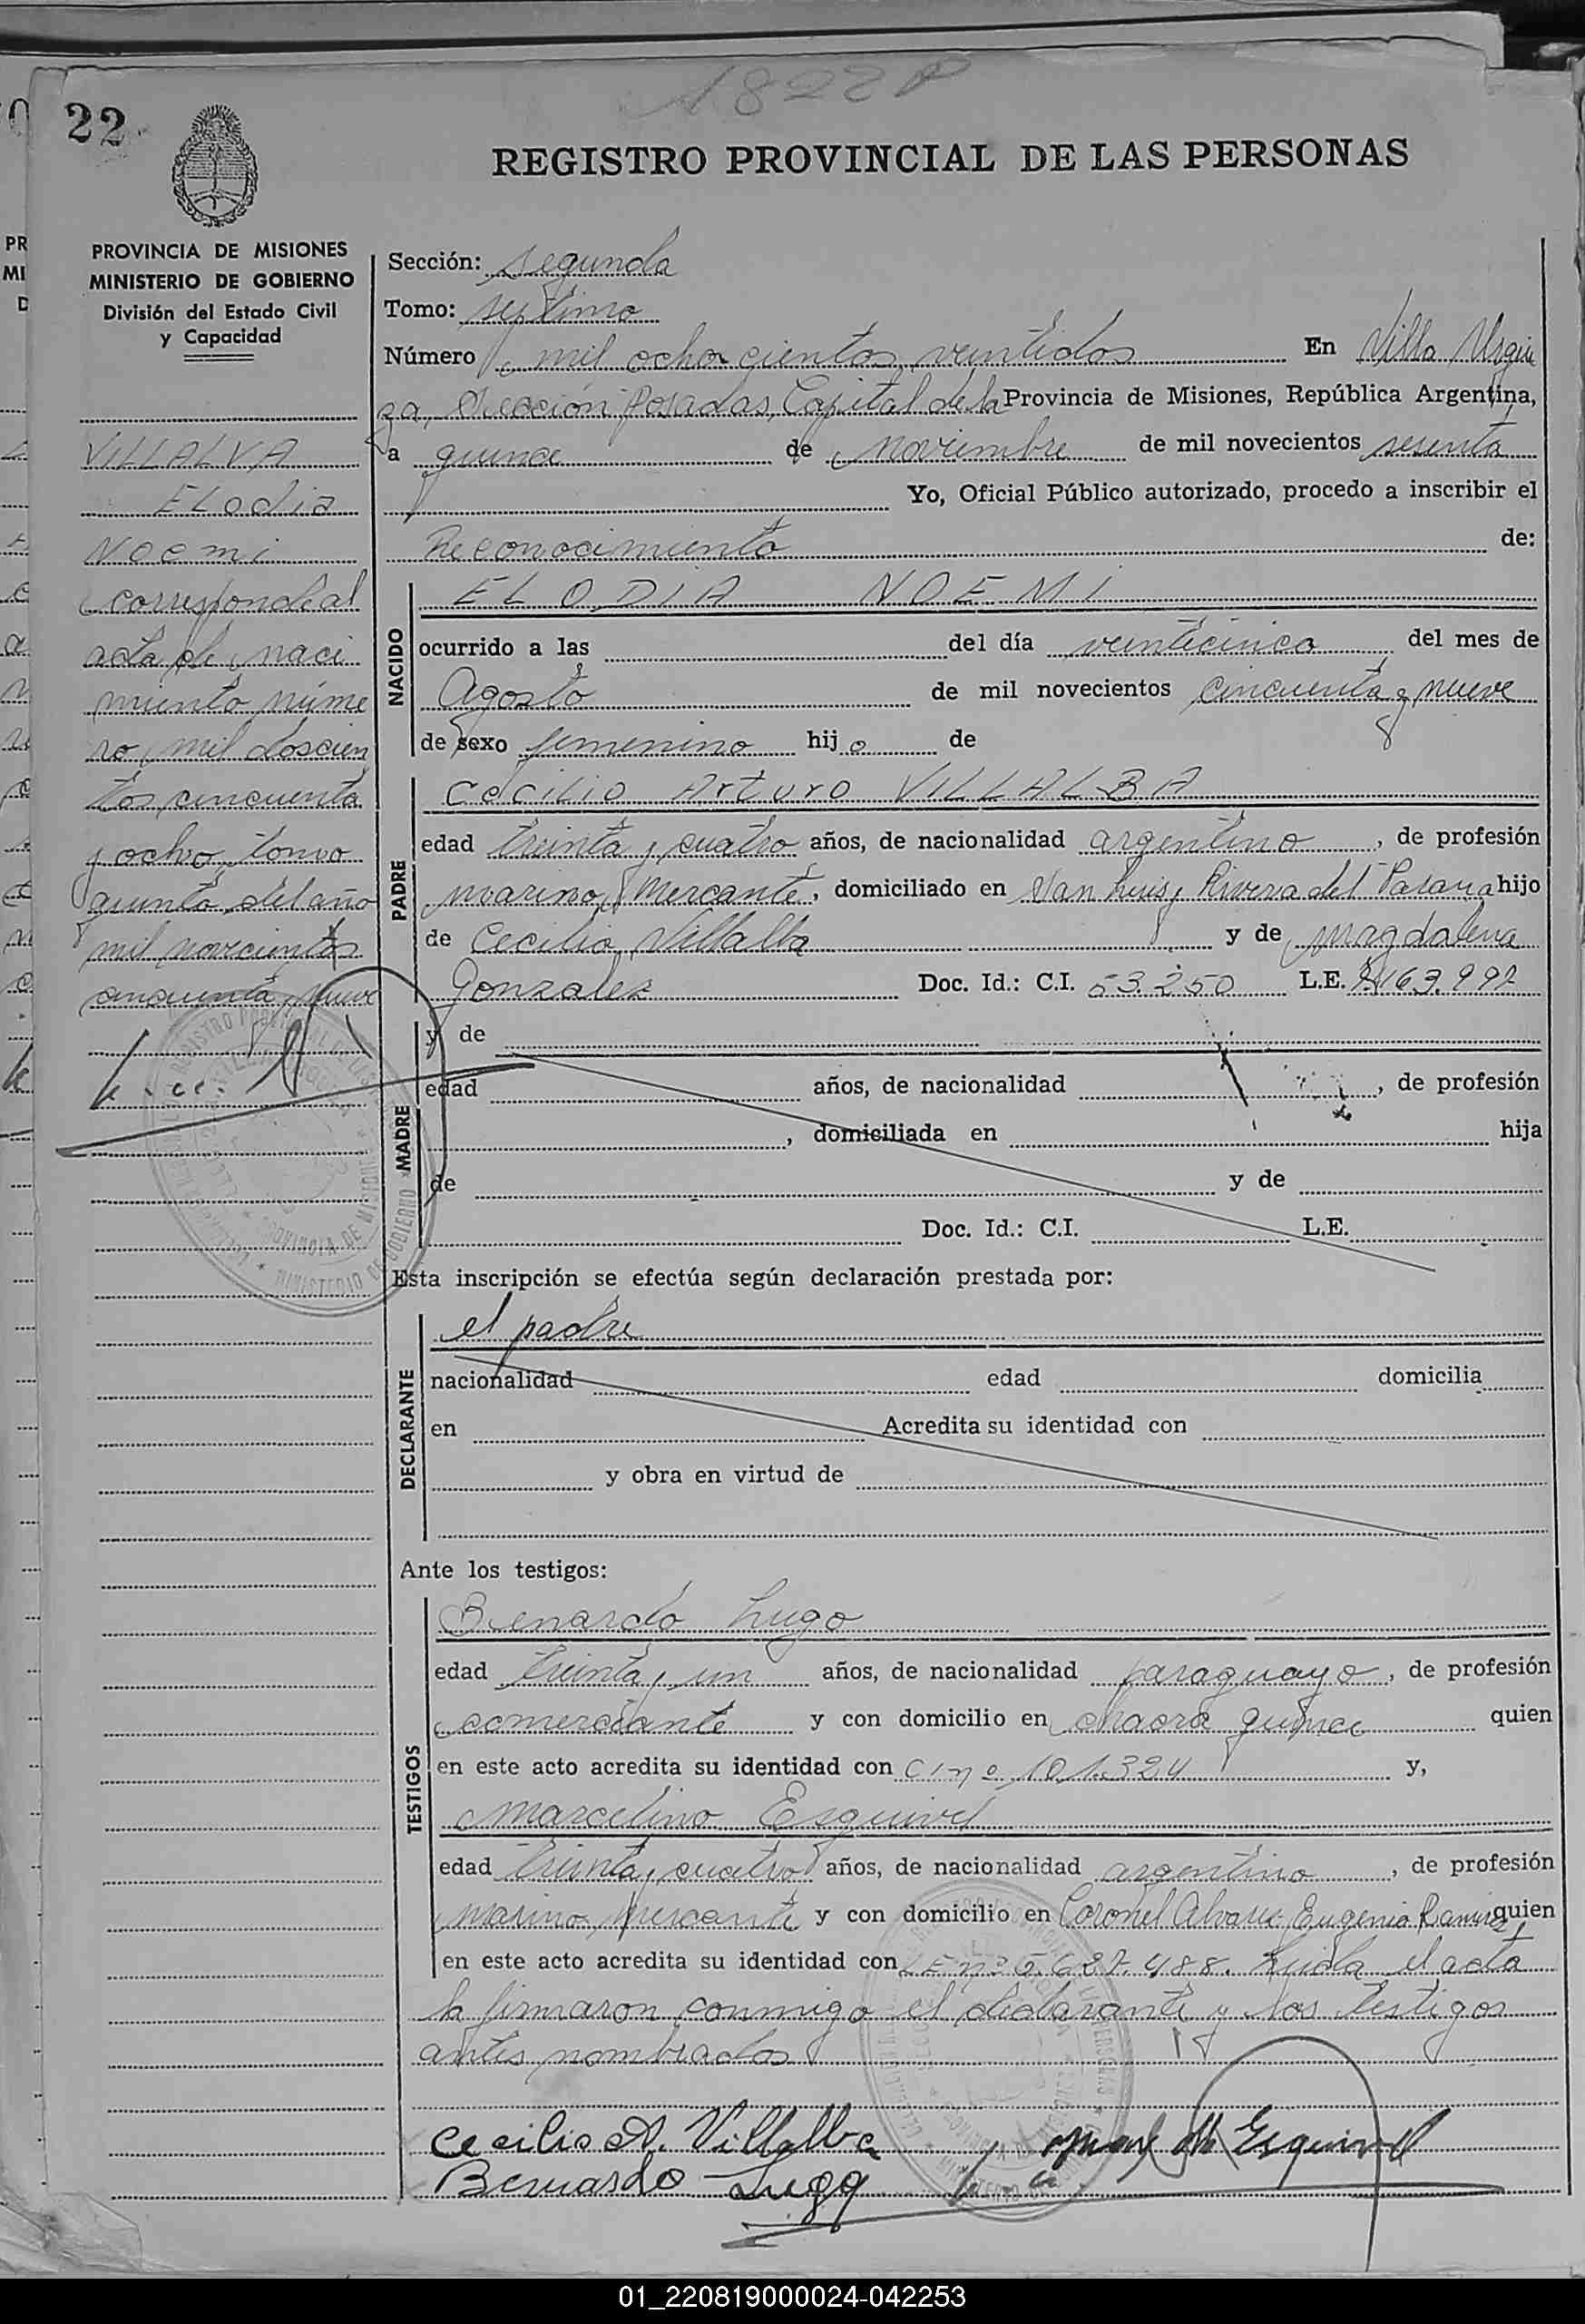 1822 P
22
REGISTRO PROVINCIAL DE LAS PERSONAS
PROVINCIA DE MISIONES
MINISTERIO DE GOBIERNO
División del Estado Civil
y Capacidad
VILLALVA
Elodia
Noemi
corresponde al
acta de naci
miento núme
ro mil doscien
tos cincuenta
y ocho, tomo
quinto del año
mil novecientos
cincuenta y nueve
Sección: segunda
Tomo: septimo
Número mil ochocientos veintidos En Villa Urqui
za, Sección Posadas, Capital de la Provincia de Misiones, República Argentina,
a quince de noviembre de mil novecientos sesenta
Yo, Oficial Público autorizado, procedo a inscribir el
Reconocimiento de:
NACIDO
ELODIA NOEMI
ocurrido a las del día veinticinco del mes de
Agosto de mil novecientos cincuenta y nueve
de sexo femenino hijo de
PADRE
Cecilio Arturo VILLALBA
edad treinta y cuatro años, de nacionalidad argentino, de profesión
marino mercante, domiciliado en San Luis y Rivera del Parana hijo
de Cecilio Villalba y de Magdalena
Gonzalez Doc. Id.: C.I. 53.250 L.E. 163.992
MADRE
y de
edad años, de nacionalidad , de profesión
, domiciliada en hija
de y de
Doc. Id.: C.I. L.E.
Esta inscripción se efectúa según declaración prestada por:
DECLARANTE
el padre
nacionalidad edad domicilia
en Acredita su identidad con
y obra en virtud de
Ante los testigos:
TESTIGOS
Bernardo Lugo
edad treinta y un años, de nacionalidad paraguayo, de profesión
comerciante y con domicilio en chacra quince quien
en este acto acredita su identidad con CI nº 101.324 y,
Marcelino Esquivel
edad treinta y cuatro años, de nacionalidad argentino, de profesión
marino mercante y con domicilio en Coronel Alvarez Eugenio Ramirez quien
en este acto acredita su identidad con LE nº 5.687.488. Leida el acta
la firmaron conmigo el declarante y los testigos
antes nombrados
Cecilio A. Villalba
M Esquivel
Bernardo Lugo
01_220819000024-042253